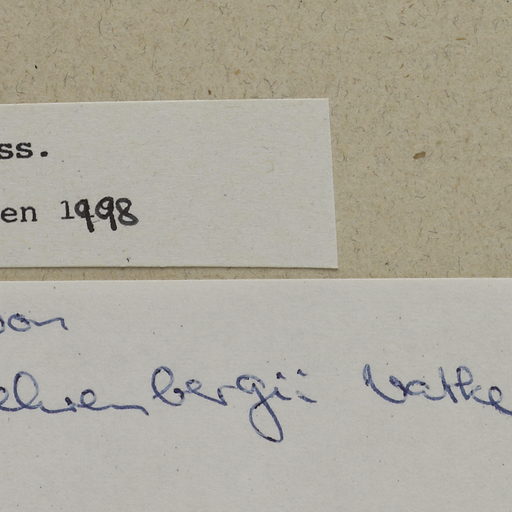 ss.
en 1998
on
ehrenbergii Vatke